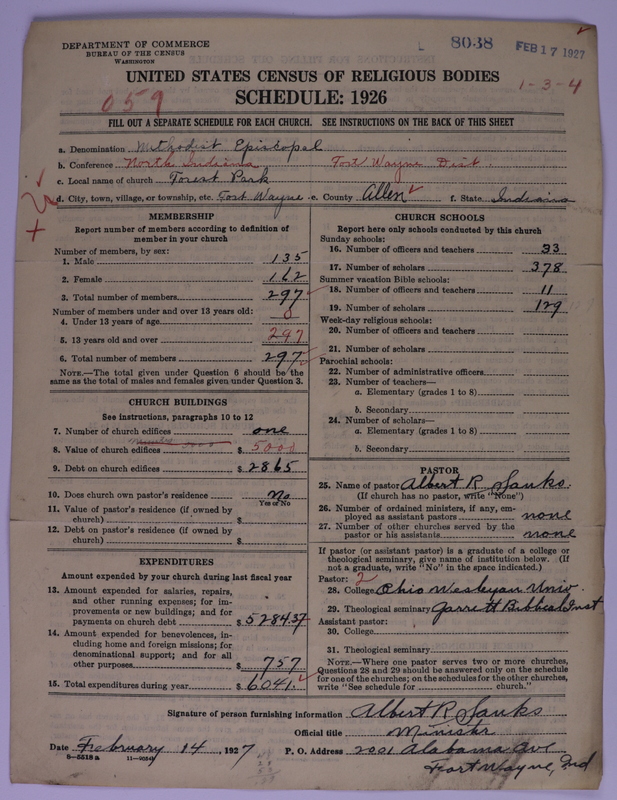 DEPARTMENT OF COMMERCE
BUREAU OF THE CENSUS
WASHINGTON
8038
FEB 17 1927
UNITED STATES CENSUS OF RELIGIOUS BODIES
1-3-4
SCHEDULE: 1926
059
FILL OUT A SEPARATE SCHEDULE FOR EACH CHURCH. SEE INSTRUCTIONS ON THE BACK OF THIS SHEET
a. Denomination Methodist Episcopal
b. Conference North Indiana Fort Wayne Dist.
c. Local name of church Forest Park
d. City, town, village, or township, etc. Fort Wayne e. County Allen f. State Indiana
MEMBERSHIP
Report number of members according to definition of
member in your church
Number of members, by sex:
1. Male 135
2. Female 162
3. Total number of members 297
Number of members under and over 13 years old:
4. Under 13 years of age 0
5. 13 years old and over 297
6. Total number of members 297
NOTE.—The total given under Question 6 should be the
same as the total of males and females given under Question 3.
CHURCH BUILDINGS
See instructions, paragraphs 10 to 12
7. Number of church edifices one
8. Value of church edifices $ 5000
9. Debt on church edifices $ 2865
10. Does church own pastor's residence No
Yes or No
11. Value of pastor's residence (if owned by
church) $
12. Debt on pastor's residence (if owned by
church) $
EXPENDITURES
Amount expended by your church during last fiscal year
13. Amount expended for salaries, repairs,
and other running expenses; for im-
provements or new buildings; and for
payments on church debt $ 5284.37
14. Amount expended for benevolences, in-
cluding home and foreign missions; for
denominational support; and for all
other purposes $ 757
15. Total expenditures during year $ 6041.
CHURCH SCHOOLS
Report here only schools conducted by this church
Sunday schools:
16. Number of officers and teachers 33
17. Number of scholars 378
Summer vacation Bible schools:
18. Number of officers and teachers 11
19. Number of scholars 129
Week-day religious schools:
20. Number of officers and teachers
21. Number of scholars
Parochial schools:
22. Number of administrative officers
23. Number of teachers—
a. Elementary (grades 1 to 8)
b. Secondary
24. Number of scholars—
a. Elementary (grades 1 to 8)
b. Secondary
PASTOR
25. Name of pastor Albert R. Sanks
(If church has no pastor, write "None")
26. Number of ordained ministers, if any, em-
ployed as assistant pastors none
27. Number of other churches served by the
pastor or his assistants none
If pastor (or assistant pastor) is a graduate of a college or
theological seminary, give name of institution below. (If
not a graduate, write "No" in the space indicated.)
Pastor: 2
28. College Ohio Wesleyan Univ.
29. Theological seminary Garrett Bibbical Inst
Assistant pastor:
30. College
31. Theological seminary
NOTE.—Where one pastor serves two or more churches,
Questions 28 and 29 should be answered only on the schedule
for one of the churches; on the schedules for the other churches,
write "See schedule for church."
Signature of person furnishing information Albert R. Sanks
Official title Minister
Date February 14, 1927 P. O. Address 2001 Alabama Ave
8-5518a 11-9054
Fort Wayne, Ind